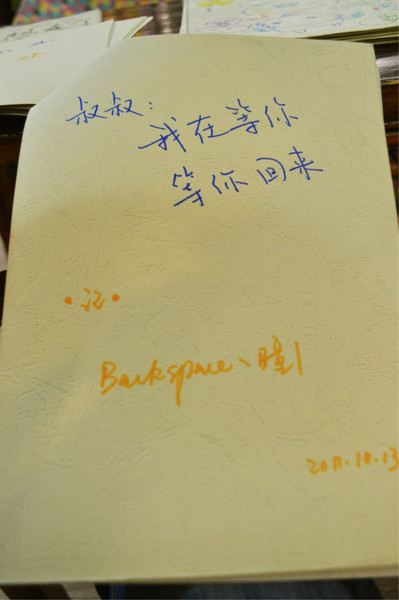 叔叔：
我在等你
等你回来
·记·
Backspace、瞳
2011.10.13